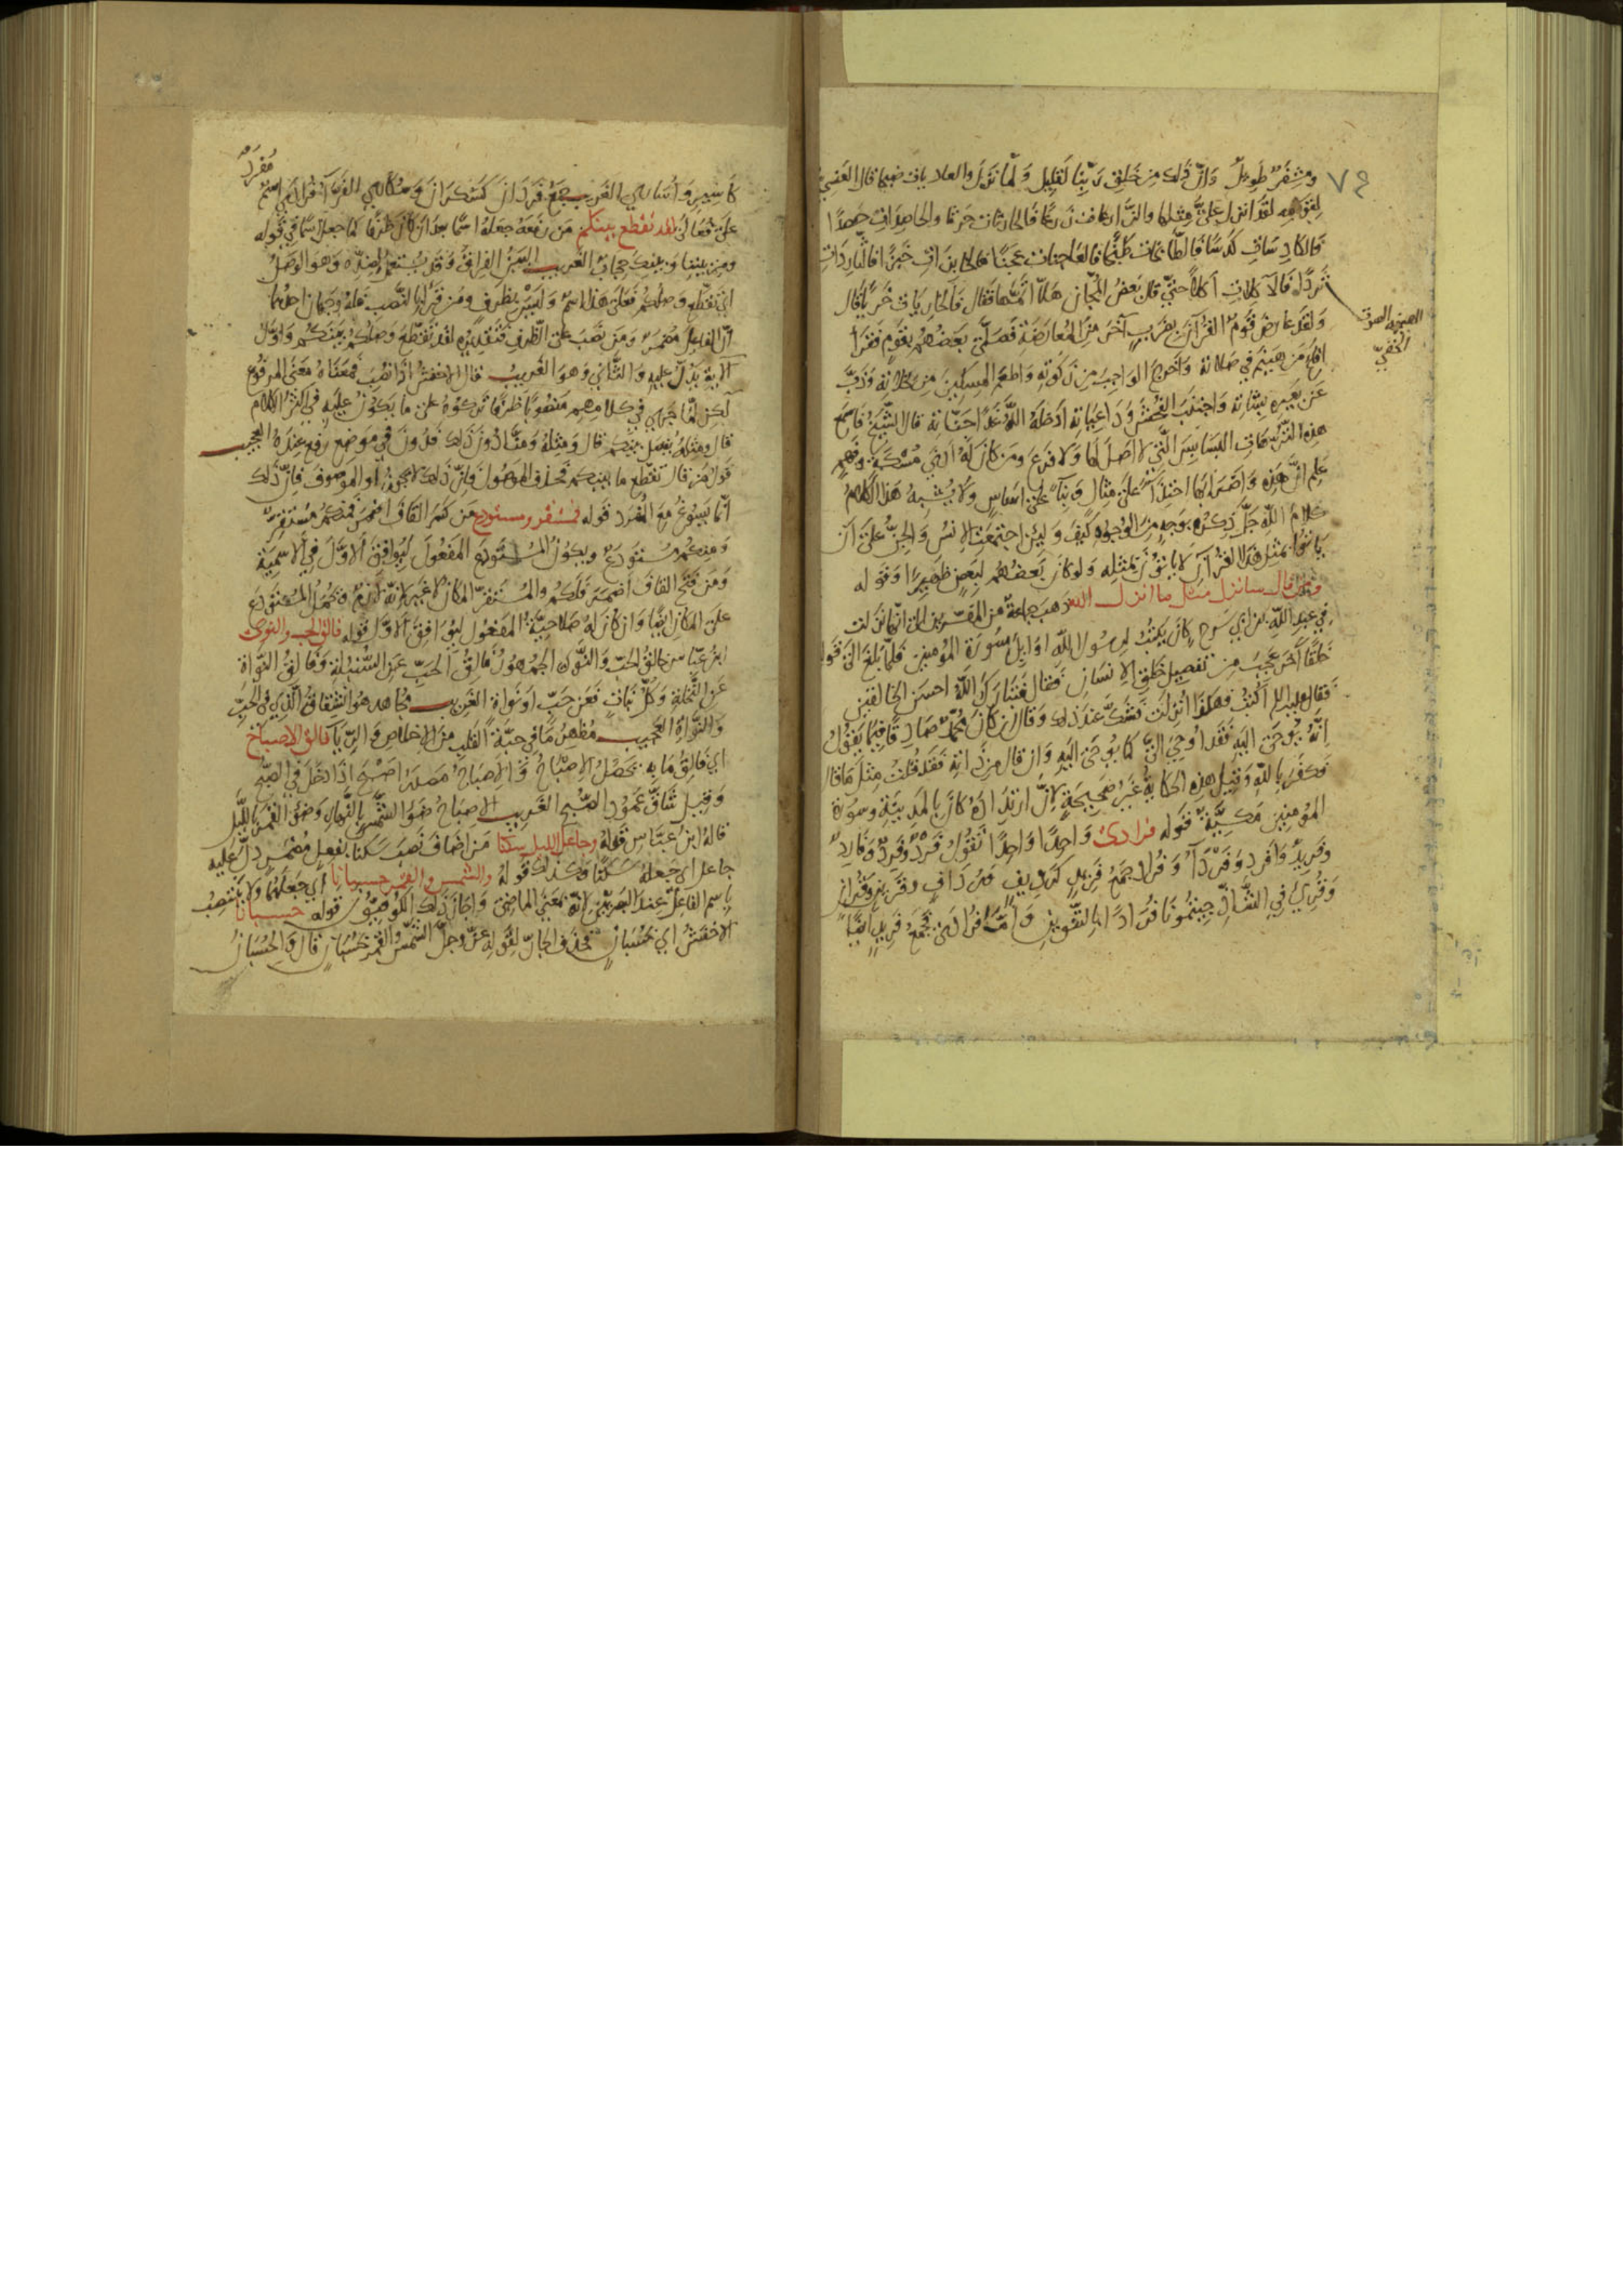 ٧٤
ومشفر طويل وان ذلك من خلق ربنا لقليل ولما نزل والعاديات ضبحا قال العنسي
لقومه لقد انزل علي مثلها والزارعات زرعا فالحارثات حرثا والحاصدات حصدا
فالكادسات كدسا فالطاحنات طحنا فالعاجنات عجنا فالخابزات خبزا فالثاردات
ثردا فالآكلات اكلا حتى قال بعض المجان هلا اتمها فقال فالخاريات خريا قال
ولقد عارض قوم القرآن بضرب آخر من المعارضة فصلى بعضهم بقوم فقرا
افلح من هينم في صلاته واخرج الواجب من زكوته واطعم المسكين من مخلاته وذب
الهينمة الصوت
الخفي
عن بعيره وشاته واجتنب الفحش وداعياته ادخله الله غدا جناته قال الشيخ فاسمع
هذه الترهات البسابس التي لا اصل لها ولا فرع ومن كان له ادنى مسكة وفهم
علم ان هذه واضرابها احتذاء على مثال وبناء على اساس ولا يشبه هذا الكلام
كلام الله جل ذكره بوجه من الوجوه كيف ولئن اجتمعت الانس والجن على ان
ياتوا بمثل هذا القرآن لا ياتون بمثله ولو كان بعضهم لبعض ظهيرا وقوله
ومن قال سانزل مثل ما انزل الله ذهب جماعة من المفسرين الى انها نزلت
في عبد الله بن ابي سرح كان يكتب لرسول الله اوايل سورة المؤمنين فلما بلغ الى قوله
خلقا آخر عجب من تفصيل خلق الانسان فقال فتبارك الله احسن الخالقين
فقال عليه السلم اكتب فهكذا انزلت فشك عند ذلك وقال ان كان محمد صادقا فيما يقول
انه يوحى اليه فقد اوحي الي كما يوحى اليه وان قال من ذاته فقد قلت مثل ما قال
فكفر بالله وقيل هذه الحكاية غير صحيحة لان ارتداده كان بالمدينة وسورة
المؤمنين مكية قوله فرادى واحدا واحدا تقول فرد وفرد وفارد
وفريد وافرد وفرداء وفراد جمع فريد كرديف ورداف وقرين وقران
وقرئ في الشاذ جئتمونا فرادا بالتنوين واما فرادى فجمع فريد ايضا
كاسير واسارى الغريب جمع فردان كسكران وسكارى الفراء فرادى اسم مفرد
على فعالى لقد تقطع بينكم من رفعه جعله اسما بعد ان كان ظرفا كما جعل اسما في قوله
ومن بيننا وبينك حجاب الغريب البين الفراق وقد يستعمل لضده وهو الوصل
اي تقطع وصلكم فعلى هذا اسم وليس بظرف ومن قرا بالنصب فله وجهان احدهما
ان الفاعل مضمر ومن نصب على الظرف فتقديره لقد تقطع وصلكم بينكم واول
الآية يدل عليه والثاني وهو الغريب قال الاخفش اذا نصب فمعناه معنى المرفوع
لكن لما جرى في كلامهم منصوبا ظرفا تركوه على ما يكون عليه في اكثر الكلام
قال ومثله يفصل بينكم قال ومثله ومنا دون ذلك فدون في موضع رفع عنده العجيب
قول من قال تقطع ما بينكم فحذف الموصول فان ذلك لا يجوز او الموصوف فان ذلك
انما يسوغ مع المفرد قوله فمستقر ومستودع من كسر القاف اضمر فمنكم مستقر
ومنكم مستودع ويكون المستودع المفعول ليوافق الاول في الاسمية
ومن فتح القاف اضمر فلكم والمستقر المكان لا غير لانه لازم وتحمل المستودع
على المكان ايضا وان كان له صلاحية المفعول ليوافق الاول قوله فالق الحب والنوى
ابن عباس خالق الحب والنوى الجمهور فالق الحب عن السنبلة وفالق النواة
عن النخلة وكل نبات فعن حب او نواة الغريب مجاهد هو الشقاق الذي في الحب
والنواة العجيب مظهر ما في حبة القلب من الاخلاص والريا فالق الاصباح
اي فالق ما به يحصل الاصباح والاصباح مصدر اصبح اذا دخل في الصبح
وقيل شاق عمود الصبح الغريب الاصباح ضوء الشمس بالنهار وضوء القمر بالليل
قاله ابن عباس قوله وجاعل الليل سكنا من اضاف نصب سكنا بفعل مضمر دل عليه
جاعل اي جعله سكنا وكذلك قوله والشمس والقمر حسبانا اي جعلهما ولا ينتصب
باسم الفاعل عند البصريين لانه بمعنى الماضي واجاز ذلك الكوفيون قوله حسبانا
الاخفش اي بحسبان فحذف الجار لقوله عز وجل الشمس والقمر بحسبان قال والحسبان